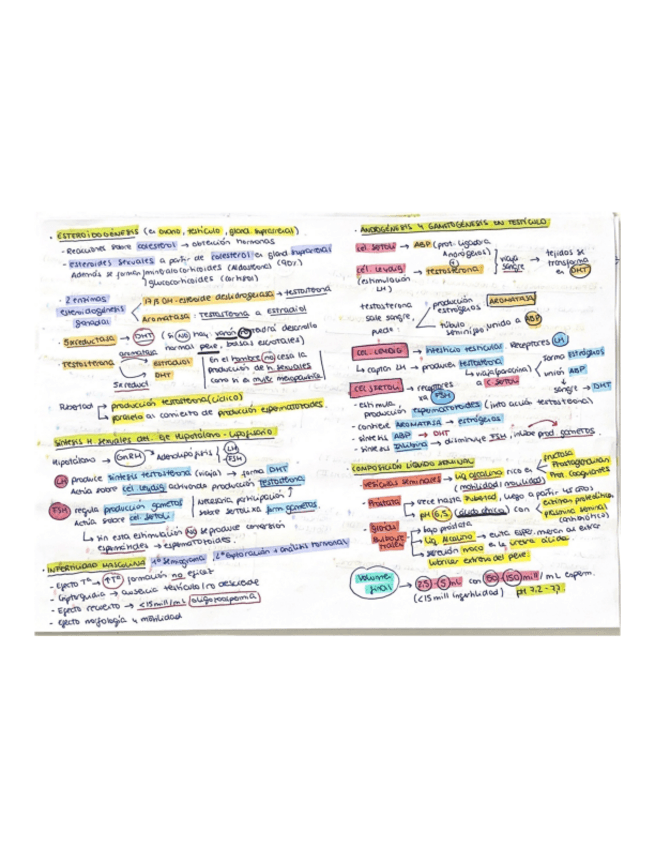 · ESTEROIDOGÉNESIS (en ovario, testículo, gland. suprarrenal)
- Reacciones sobre colesterol → obtención hormonas
- esteroides sexuales a partir de colesterol en gland suprarrenal
Además se forman mineralocorticoides (Aldosterona) (90%)
glucocorticoides (cortisol)
- 2 enzimas esteroidogénesis gonadal
17β OH-esteroide deshidrogenasa → testosterona
Aromatasa: testosterona a estradiol
- 5α reductasa → DHT (si NO hay, varón no tendrá desarrollo
normal pene, bolsas escrotales)
Testosterona
aromatasa estradiol
5α reduct DHT
En el hombre no cesa la
producción de h. sexuales
como si en mujer menopausica
Pubertad
producción testosterona (cíclico)
paralelo al comienzo de producción espermatozoides.
Síntesis H. sexuales dm. Eje Hipotálamo - hipofisario
Hipotálamo → GnRH → Adenohipófisis LH FSH
LH produce síntesis testosterona (viaja) → forma DHT
Actúa sobre cel. Leydig activando producción testosterona
FSH regula producción gametos
Actúa sobre cel. Sertoli
Necesaria participación
sertoli xa form gametos.
↳ sin esta estimulación NO se produce conversión
espermátides → espermatozoides.
· INFERTILIDAD MASCULINA 1º Semiograma, 2º Exploración + análisis hormonal
- Efecto Tº → ↑Tº formación no eficaz
- Criptorquidia → ausencia testículo / no desciende
- Efecto recuento → <15mill/mL oligozoospermia
- efecto morfología y motilidad
ANDROGÉNESIS Y GAMETOGÉNESIS EN TESTÍCULO
cel. Sertoli → ABP (prot. ligadora
Andrógenos)
cel. Leydig → testosterona
(estimulación
LH)
viaja sangre → tejidos se
transforma
en DHT
testosterona
sale sangre,
puede:
producción
estrógenos AROMATASA
túbulo
seminíf. unido a ABP
CEL. LEYDIG → intersticio testicular. Receptores LH
↳ captan LH → produce testosterona
↳ viaja (paracrina)
a C. Sertoli
forma Estrógenos
unión ABP
sangre → DHT
CEL. SERTOLI → receptores
xa FSH
- estimula
producción espermatozoides (junto acción testosterona)
- contiene AROMATASA → estrógenos
- síntesis ABP → DHT
- síntesis Inhibina → disminuye FSH, inhibe prod. gametos.
COMPOSICIÓN LÍQUIDO SEMINAL
- Vesículas seminales → Líq alcalino rico en
(motilidad/movilidad)
fructosa
Prostaglandinas
Prot. Coagulantes
- Próstata
crece hasta pubertad, luego a partir 45 años
pH 6,5 (ácido cítrico) con
enzimas proteolíticas
plasmina seminal
(antibiótico)
- Gland.
bulbouretrales
bajo próstata
Líq. Alcalino → evita esper. mueran al estar
en la uretra ácida
secreción moco
lubricar extremo del pene.
Volumen
final → 2,5 - 5 mL con 50 - 150 mill/mL esperm.
(<15 mill infertilidad) pH 7,2 - 7,7.